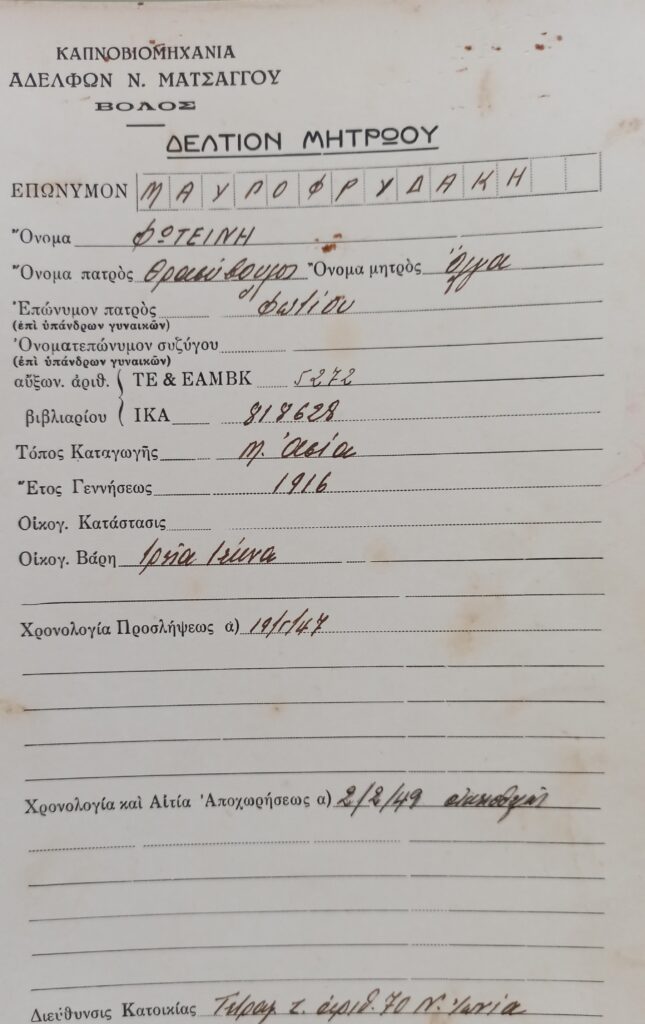 ΚΑΠΝΟΒΙΟΜΗΧΑΝΙΑ
ΑΔΕΛΦΩΝ Ν. ΜΑΤΣΑΓΓΟΥ
ΒΟΛΟΣ
ΔΕΛΤΙΟΝ ΜΗΤΡΩΟΥ
ΕΠΩΝΥΜΟΝ ΜΑΥΡΟΦΡΥΔΑΚΗ
Ὄνομα ΦΩΤΕΙΝΗ
Ὄνομα πατρὸς Θρασύβουλος Ὄνομα μητρὸς Όλγα
Ἐπώνυμον πατρὸς Φωτίου
(ἐπὶ ὑπάνδρων γυναικῶν)
Ὀνοματεπώνυμον συζύγου
(ἐπὶ ὑπάνδρων γυναικῶν)
αὔξων. ἀριθ. ΤΕ & ΕΑΜΒΚ 5272
βιβλιαρίου ΙΚΑ 818628
Τόπος Καταγωγῆς Μ. Ἀσία
Ἔτος Γεννήσεως 1916
Οἰκογ. Κατάστασις
Οἰκογ. Βάρη τρία τέκνα
Χρονολογία Προσλήψεως α) 19/5/47
Χρονολογία καὶ Αἰτία Ἀποχωρήσεως α) 2/2/49
Διεύθυνσις Κατοικίας Τετραγ. ἀριθ. 70 Ν. Ἰωνία